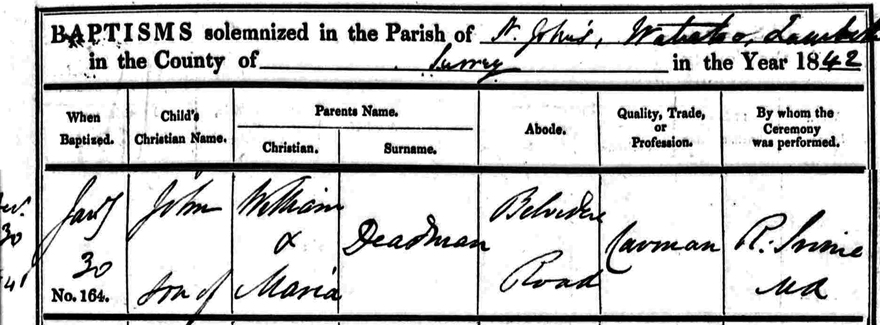 BAPTISMS solemnized in the Parish of St John's, Waterloo, Lambeth
in the County of Surrey in the Year 1842
When Baptized.
Child's Christian Name.
Parents Name.
Christian.
Surname.
Abode.
Quality, Trade, or Profession.
By whom the Ceremony was performed.
Jany 30
No. 164.
John son of
William & Maria
Deadman
Belvidere Road
Carman
R. Irvine
30